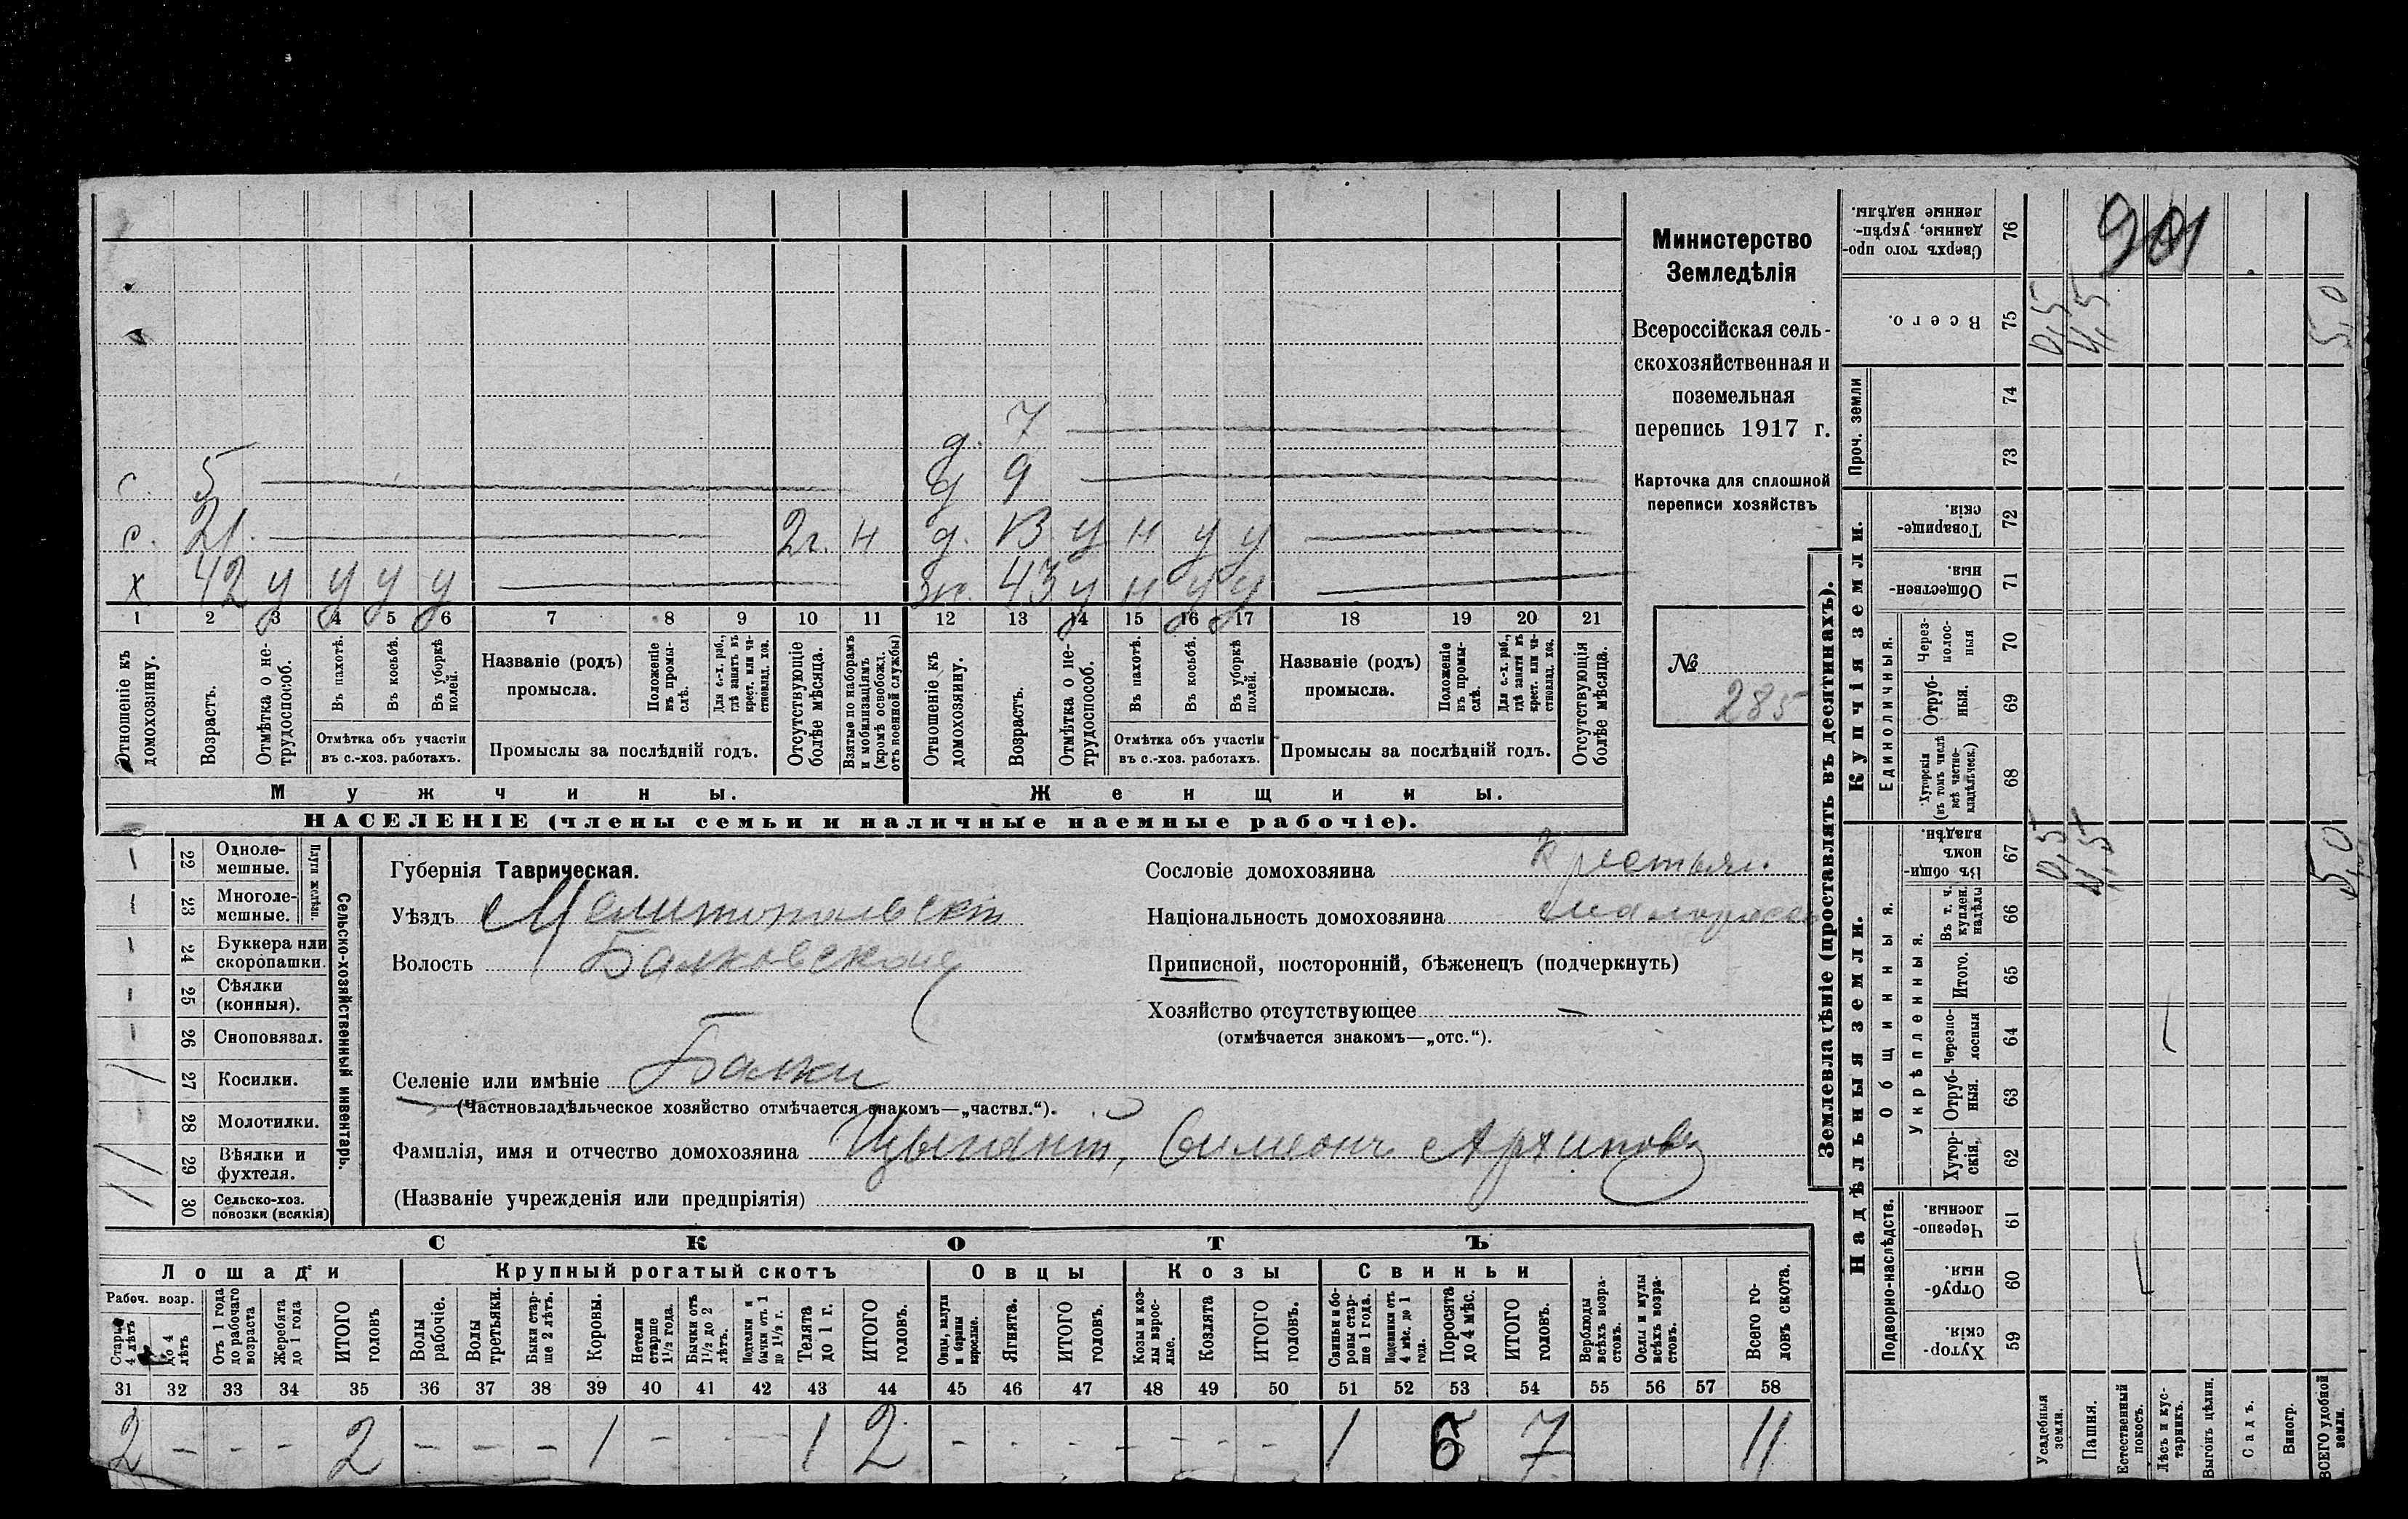 901
Министерство
Земледѣлія
Всероссійская сель-
скохозяйственная и
поземельная
перепись 1917 г.
Карточка для сплошной
переписи хозяйствъ
№
285
д. 7
с. 5 д 9
с. 21. 2г. н д. 13 у н у у
х 42 у у у у ж. 43 у н у у
1 2 3 4 5 6 7 8 9 10 11 12 13 14 15 16 17 18 19 20 21
Отношеніе къ домохозяину.
Возрастъ.
Отмѣтка о не-трудоспособ.
Въ пахотѣ.
Въ косьбѣ.
Въ уборкѣ полей.
Отмѣтка объ участіи
въ с.-хоз. работахъ.
Названіе (родъ)
промысла.
Положеніе въ промы-слѣ.
Для с.-х. раб., гдѣ занятъ въ крест. или ча-стновлад. хоз.
Промыслы за послѣдній годъ.
Отсутствующіе болѣе мѣсяца.
Взятые по наборамъ и мобилизаціямъ (кромѣ освобожд. отъ военной службы)
Отношеніе къ домохозяину.
Возрастъ.
Отмѣтка о не-трудоспособ.
Въ пахотѣ.
Въ косьбѣ.
Въ уборкѣ полей.
Отмѣтка объ участіи
въ с.-хоз. работахъ.
Названіе (родъ)
промысла.
Положеніе въ промы-слѣ.
Для с.-х. раб., гдѣ заняти въ крест. или ча-стновлад. хоз.
Промыслы за послѣдній годъ.
Отсутствующія болѣе мѣсяца.
Мужчины. Женщины.
НАСЕЛЕНІЕ (члены семьи и наличные наемные рабочіе).
Сельско-хозяйственный инвентарь.
Плуги желѣзн.
22 Одноле-мешные. —
23 Многоле-мешные. —
24 Буккера или скоропашки. —
25 Сѣялки (конныя). —
26 Сноповязал. —
27 Косилки. /
28 Молотилки. —
29 Вѣялки и фухтеля. /
30 Сельско-хоз. повозки (всякія) /
Губернія Таврическая.
Уѣздъ Мелитопольскій
Волость Балковская
Селеніе или имѣніе Балки
(Частновладѣльческое хозяйство отмѣчается знакомъ—„частвл.“).
Фамилія, имя и отчество домохозяина Цыганій, Симеонъ Архиповъ
(Названіе учрежденія или предпріятія)
Сословіе домохозяина Крестьян.
Національность домохозяина малоросс
Приписной, посторонній, бѣженецъ (подчеркнуть)
Хозяйство отсутствующее —
(отмѣчается знакомъ—„отс.“).
СКОТЪ
Лошади Крупный рогатый скотъ Овцы Козы Свиньи
Рабоч. возр.
Старше 4 лѣтъ
до 4 лѣтъ
Отъ 1 года до рабочаго возраста
Жеребята до 1 года
ИТОГО головъ
Волы рабочіе.
Волы третьяки.
Быки стар-ше 2 лѣтъ.
Коровы.
Нетели старше 1½ года.
Бычки отъ 1½ до 2 лѣтъ.
Подтелки и бычки отъ 1 до 1½ г.
Телята до 1 г.
ИТОГО головъ.
Овцы, валухи и бараны взрослые.
Ягнята.
ИТОГО головъ.
Козы и коз-лы взрос-лые.
Козлята
ИТОГО головъ.
Свиньи и бо-ровы стар-ше 1 года.
Подсвинки отъ 4 мѣс. до 1 года.
Поросята до 4 мѣс.
ИТОГО головъ.
Верблюды всѣхъ возра-стовъ.
Ослы и мулы всѣхъ возра-стовъ.
Всего го-ловъ скота.
31 32 33 34 35 36 37 38 39 40 41 42 43 44 45 46 47 48 49 50 51 52 53 54 55 56 57 58
2 – – – 2 – – – 1 – 1 2 – – – – – – 1 6 7 11
Землевладѣніе (проставлять въ десятинахъ).
Надѣльныя земли. Купчія земли. Проч. земли
Подворно-наслѣдств. Общинныя. Укрѣпленныя. Единоличныя.
Хутор-скія. 59
Отруб-ныя. 60
Черезпо-лосныя. 61
Хутор-скія. 62
Отруб-ныя. 63
Черезпо-лосныя 64
Итого. 65
Въ т. ч. куплен. надѣлы 66
Въ общин-номъ владѣн. 67
0,5 4,5 5,0
Хуторскія (въ томъ числѣ всѣ частно-владѣльческ.) 68
Отруб-ныя. 69
Через-полос-ныя 70
Обществен-ныя. 71
Товарище-скія. 72
73
74
Всего. 75
0,5 4,5 5,0
Сверхъ того про-данные, укрѣп-ленные надѣлы. 76
Усадебныя земли.
Пашня.
Естественный покосъ.
Лѣсъ и кус-тарникъ.
Выгонъ цѣлин.
Садъ.
Виногр.
ВСЕГО удобной земли.